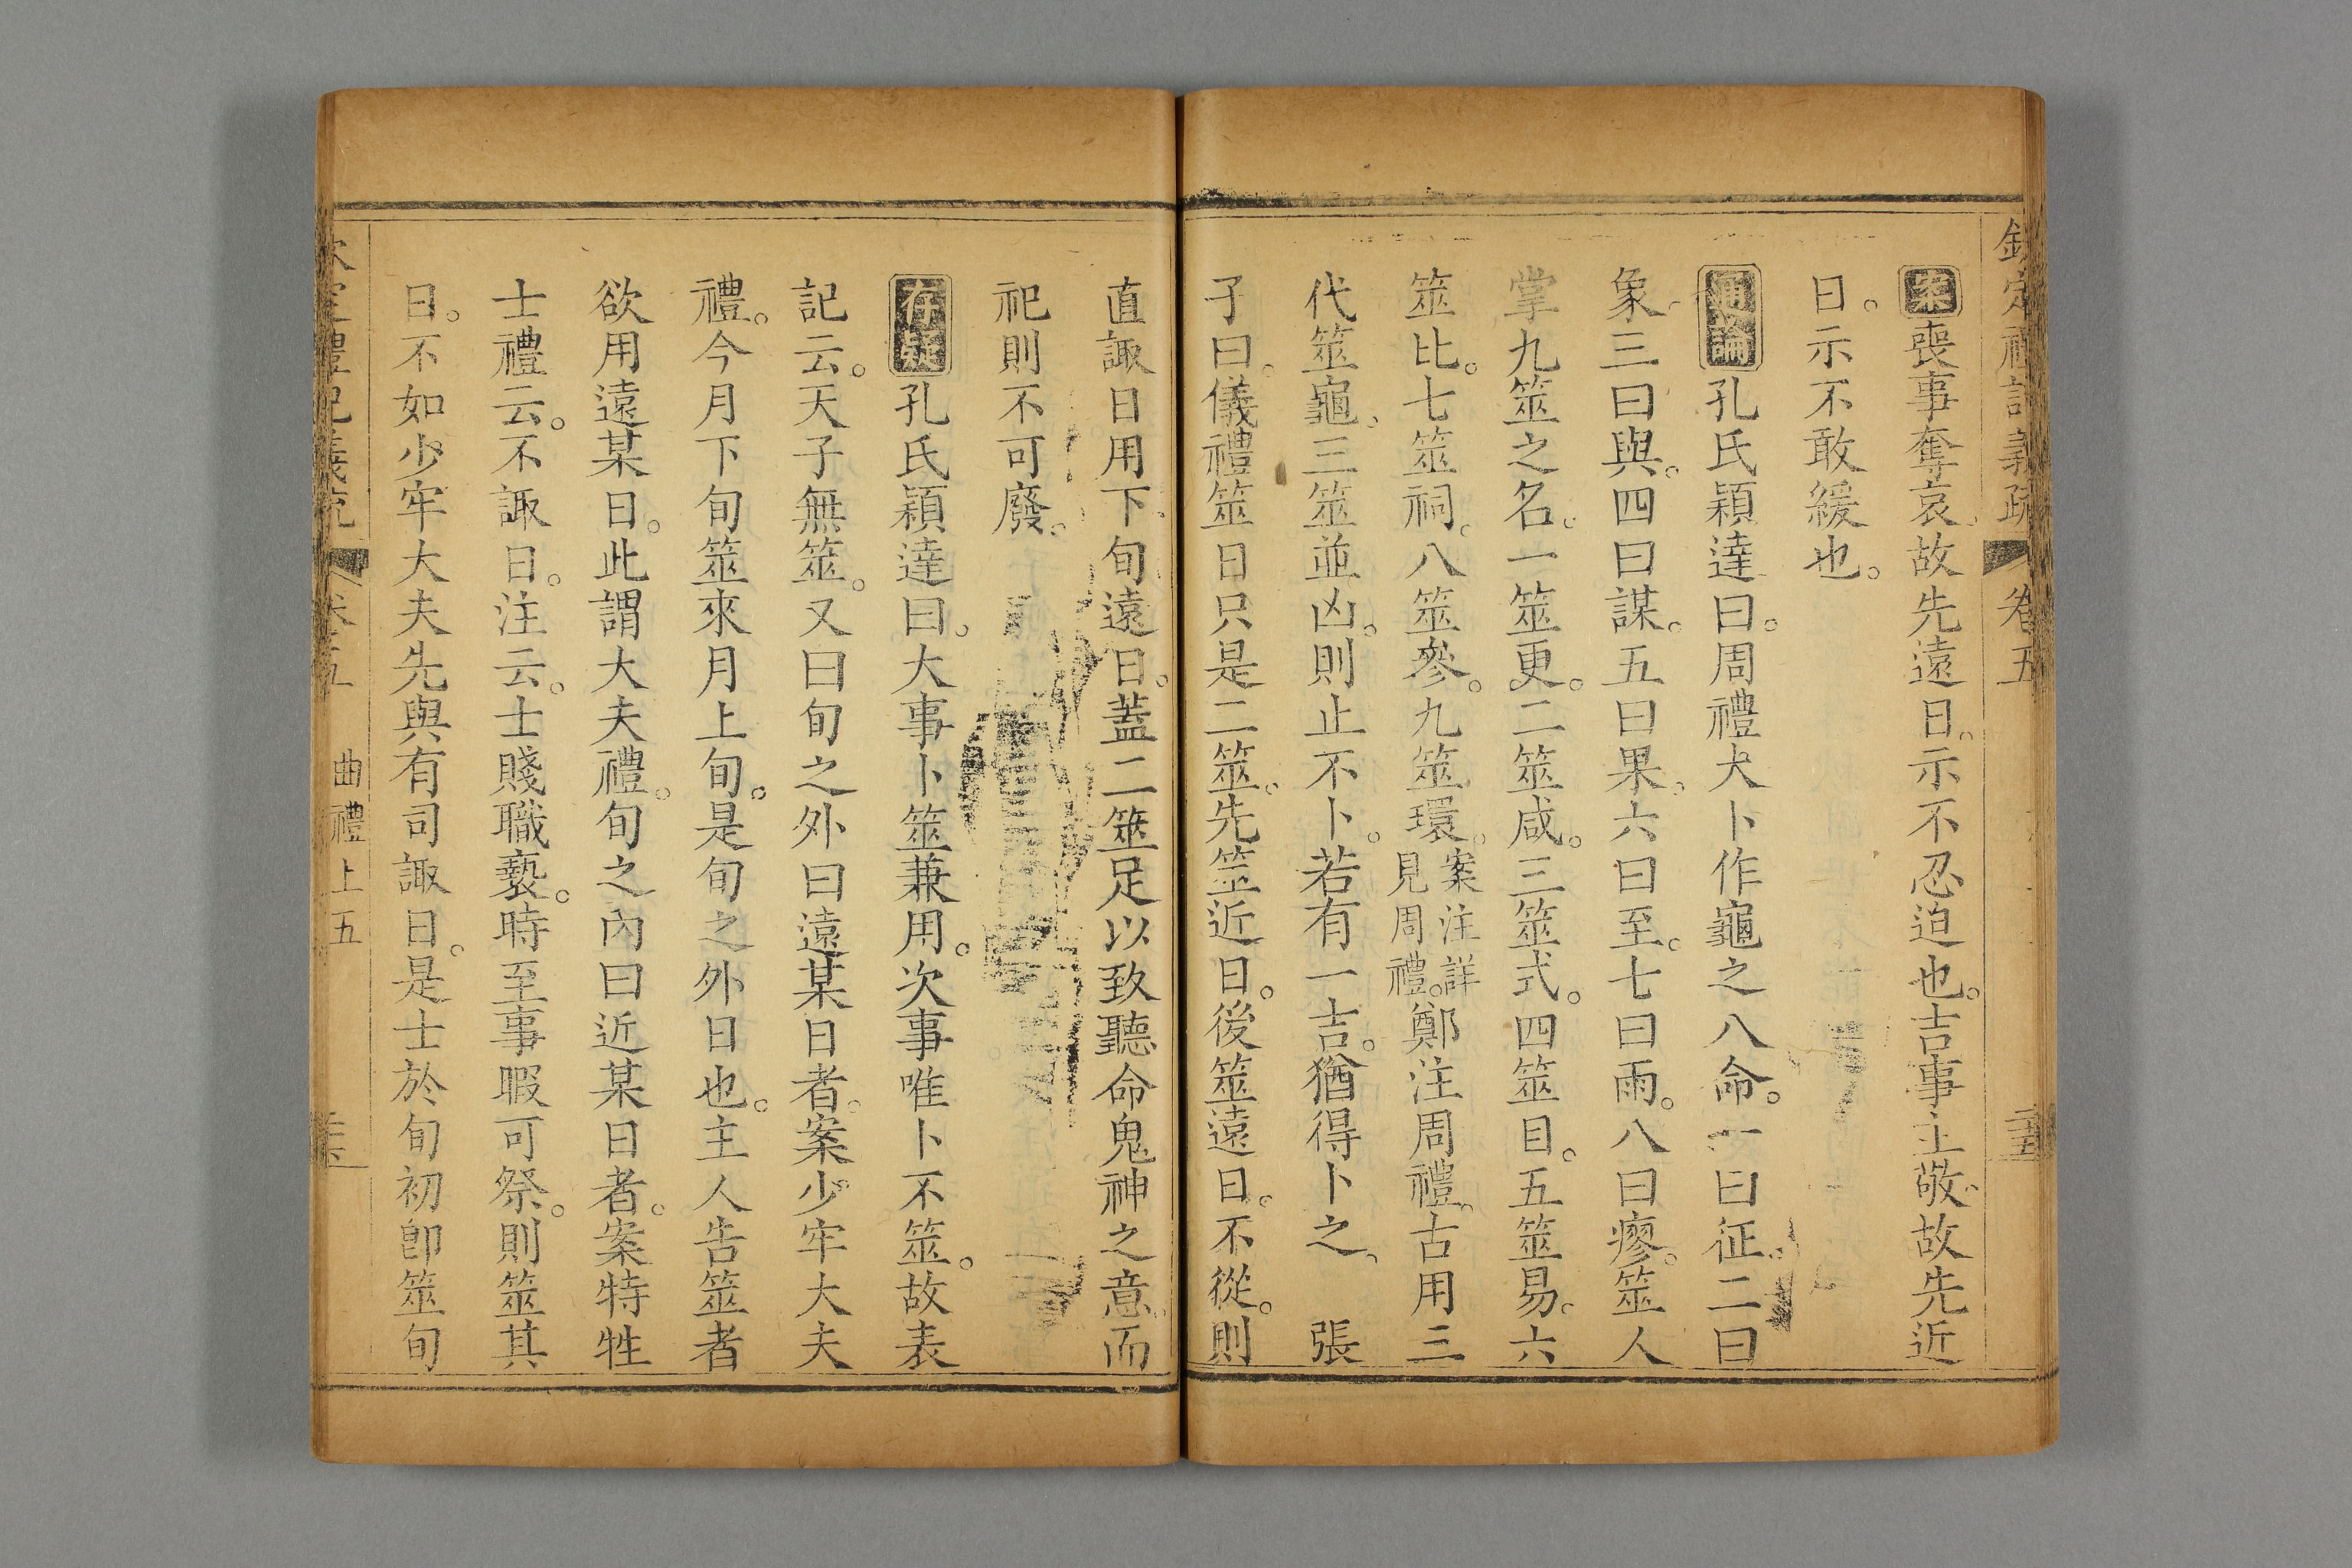 欽定禮記義疏 卷五
案喪事奪哀故先遠日。示不忍迫也。吉事主敬。故先近
日。示不敢緩也。
通論孔氏穎達曰。周禮大卜作龜之八命。一曰征。二曰
象。三曰與。四曰謀。五曰果。六曰至。七曰雨。八曰瘳。筮人
掌九筮之名。一筮更。二筮咸。三筮式。四筮目。五筮易。六
筮比。七筮祠。八筮參。九筮環。案注詳見周禮。鄭注周禮。古用三
代筮龜。三筮並凶。則止不卜。若有一吉。猶得卜之。 張
子曰。儀禮筮日只是二筮。先筮近日。後筮遠日。不從。則
直諏日用下旬遠日。蓋二筮足以致聽命鬼神之意。而
祀則不可廢。
存疑孔氏穎達曰。大事卜筮兼用。次事唯卜不筮。故表
記云。天子無筮。又曰旬之外曰遠某日者。案少牢大夫
禮。今月下旬筮來月上旬。是旬之外日也。主人告筮者
欲用遠某日。此謂大夫禮。旬之內曰近某日者。案特牲
士禮云。不諏日。注云。士賤職褻。時至事暇可祭。則筮其
日。不如少牢大夫先與有司諏日。是士於旬初卽筮旬
欽定禮記義疏 卷五 曲禮上五